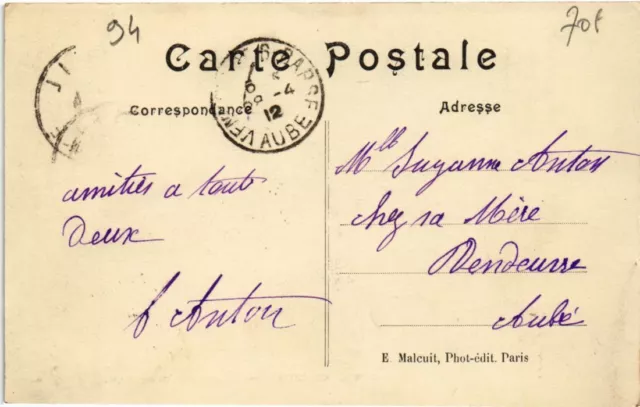 94
70f
Carte Postale
Correspondance
Adresse
S-BAR-SEINE
4
12
AUBE
amitiés a toute
Deux
A Anton
Mlle Suzanne Anton
chez sa Mère
Vendeuvre
Aube
E Malcuit, Phot-édit. Paris